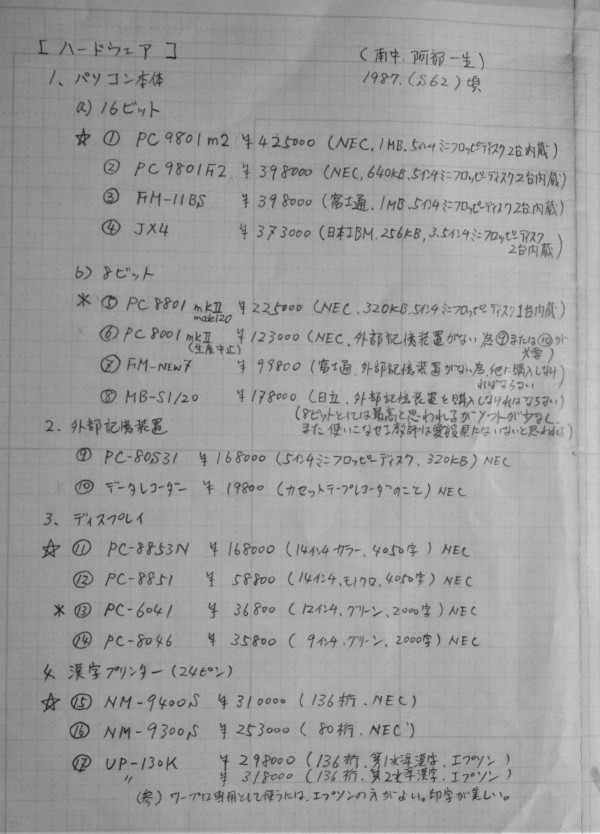 [ ハードウェア ]
(南中、阿部一生)
1987.(S62)頃
1、パソコン本体
a) 16ビット
☆ ① PC9801m2 ¥425000 (NEC, 1MB, 5インチミニフロッピーディスク2台内蔵)
② PC9801F2 ¥398000 (NEC, 640KB, 5インチミニフロッピーディスク2台内蔵)
③ FM-11BS ¥398000 (富士通、1MB, 5インチミニフロッピーディスク2台内蔵)
④ JX4 ¥373000 (日本IBM, 256KB, 3.5インチミニフロッピーディスク
2台内蔵)
b) 8ビット
* ⑤ PC8801 mkII ¥225000 (NEC, 320KB, 5インチミニフロッピーディスク1台内蔵)
⑥ PC8001 mkII ¥123000 (NEC, 外部記憶装置がない為⑨または⑩が
(生産中止) 必要)
⑦ FM-NEW7 ¥99800 (富士通、外部記憶装置がない為、他に購入しなけ
ればならない
⑧ MB-S1/20 ¥178000 (日立、外部記憶装置を購入しなければならない)
(8ビットとしては最高と思われるがソフトが少なし、
また使いこなせる教師は愛媛県にはいないと思われる)
2、外部記憶装置
⑨ PC-80S31 ¥168000 (5インチミニフロッピーディスク、320KB) NEC
⑩ データレコーダー ¥19800 (カセットテープレコーダーのこと) NEC
3、ディスプレイ
☆ ⑪ PC-8853N ¥168000 (14インチカラー、4050字) NEC
⑫ PC-8851 ¥58800 (14インチ、モノクロ、4050字) NEC
* ⑬ PC-6041 ¥36800 (12インチ、グリーン、2000字) NEC
⑭ PC-8046 ¥35800 (9インチ、グリーン、2000字) NEC
4、漢字プリンター (24ピン)
☆ ⑮ NM-9400S ¥310000 (136桁、NEC)
⑯ NM-9300S ¥253000 (80桁、NEC)
⑰ UP-130K ¥298000 (136桁、第1水準漢字、エプソン)
〃 ¥318000 (136桁、第2水準漢字、エプソン)
(参) ワープロ専用として使うには、エプソンの方がよい。印字が美しい。